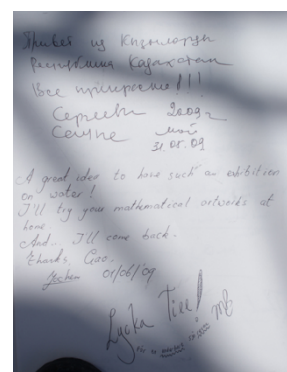 Привет из Кызылорды
Республика Казахстан
Все прекрасно!!!
2009 г
май
31.05.09
A great idea to have such an exhibition
on water!
I'll try your mathematical artworks at
home.
And.. I'll come back.
Thanks,
Jochen 01/06/09